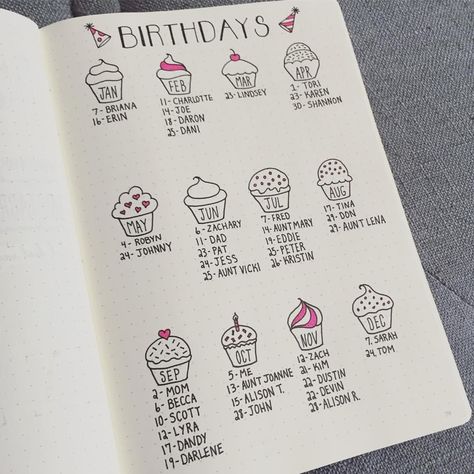 BIRTHDAYS
JAN
7- BRIANA
16- ERIN
FEB
11- CHARLOTTE
14- JOE
18- DARON
25- DANI
MAR
25- LINDSEY
APR
1- TORI
23- KAREN
30- SHANNON
MAY
4- ROBYN
24- JOHNNY
JUN
6- ZACHARY
11- DAD
23- PAT
24- JESS
25- AUNT VICKI
JUL
7- FRED
14- AUNT MARY
19- EDDIE
25- PETER
26- KRISTIN
AUG
17- TINA
29- DON
29- AUNT LENA
SEP
2- MOM
6- BECCA
10- SCOTT
12- LYRA
17- DANDY
19- DARLENE
OCT
5- ME
13- AUNT JOANNE
15- ALISON T.
28- JOHN
NOV
12- ZACH
21- KIM
22- DUSTIN
22- DEVIN
28- ALISON R.
DEC
7- SARAH
24- TOM